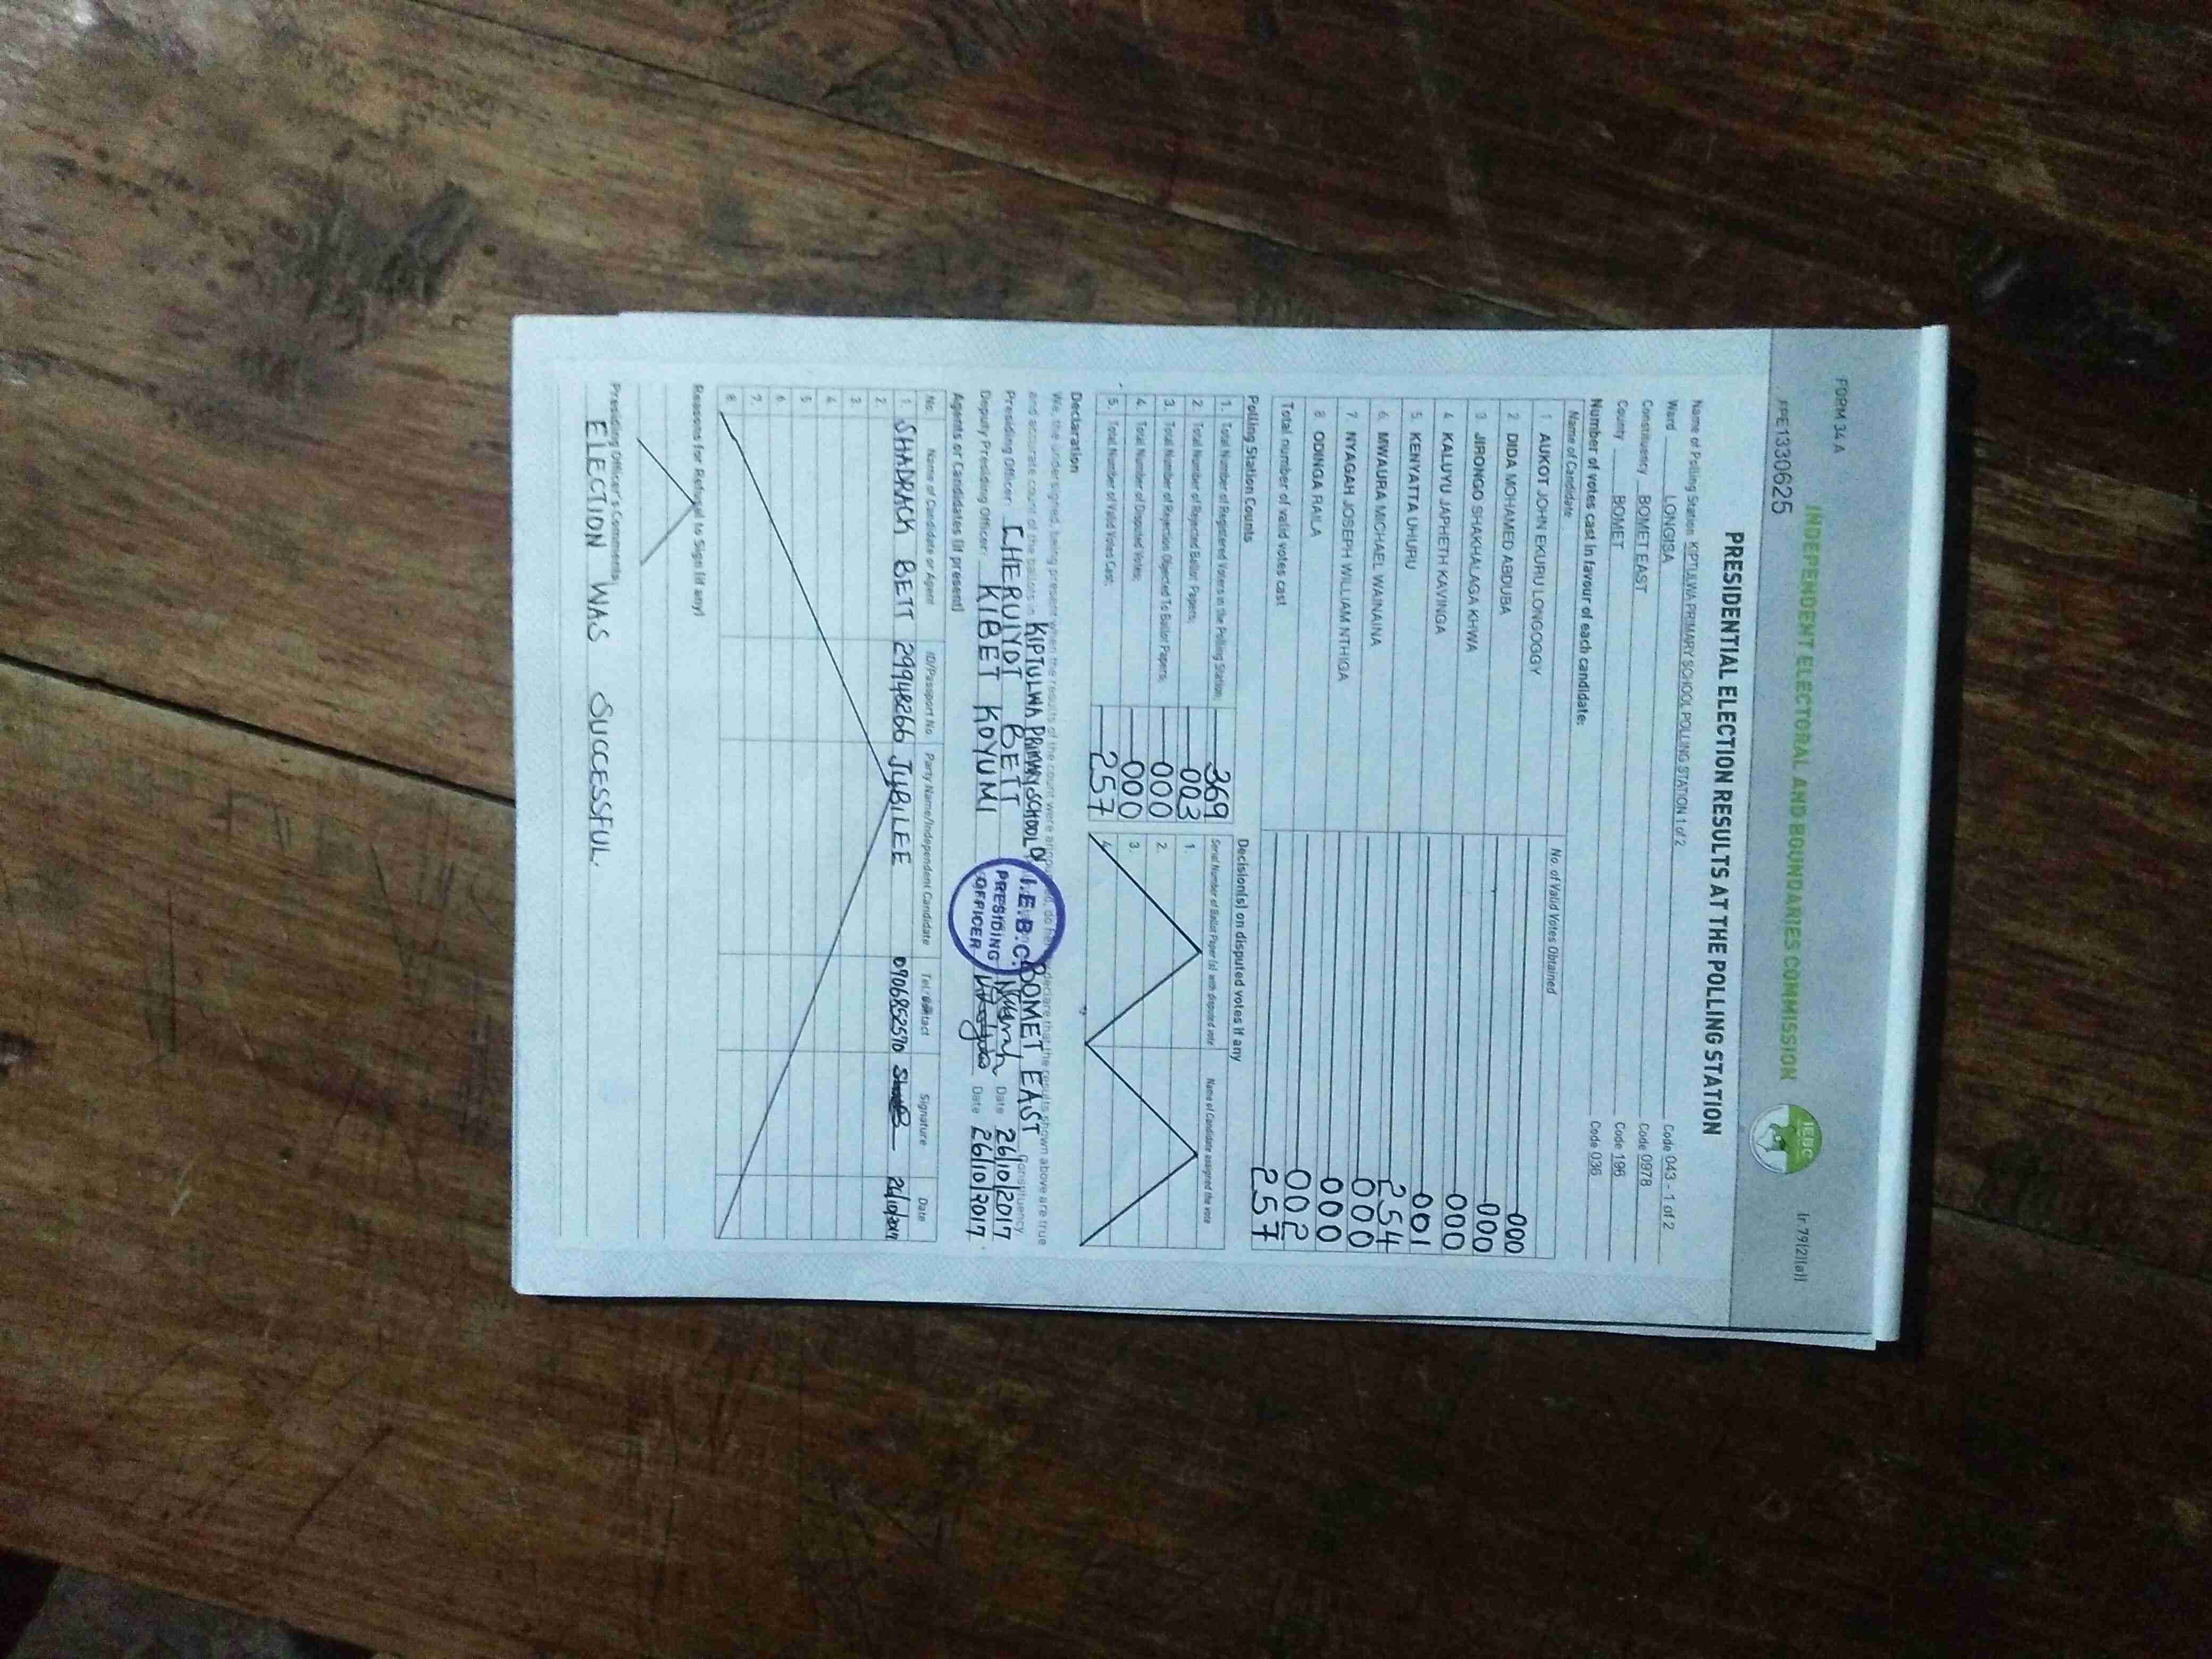 FORM 34 A
(r.79(2)(a))
INDEPENDENT ELECTORAL AND BOUNDARIES COMMISSION
IEBC
1330625
PRESIDENTIAL ELECTION RESULTS AT THE POLLING STATION
Name of Polling Station KIPTULWA PRIMARY SCHOOL POLLING STATION 1 of 2 Code 043 - 1 of 2
Ward LONGISA Code 0978
Constituency BOMET EAST Code 196
County BOMET Code 036
Number of votes cast in favour of each candidate:
Name of Candidate No. of Valid Votes Obtained
1 AUKOT JOHN EKURU LONGOGGY 000
2 DIDA MOHAMED ABDUBA 000
3 JIRONGO SHAKHALAGA KHWA 000
4 KALUYU JAPHETH KAVINGA 001
5 KENYATTA UHURU 254
6 MWAURA MICHAEL WAINAINA 000
7 NYAGAH JOSEPH WILLIAM NTHIGA 000
8 ODINGA RAILA 002
Total number of valid votes cast 257
Polling Station Counts
1. Total Number of Registered Voters in the Polling Station; 369
2. Total Number of Rejected Ballot Papers; 003
3. Total Number of Rejection Objected To Ballot Papers; 000
4. Total Number of Disputed Votes; 000
5. Total Number of Valid Votes Cast; 257
Decision(s) on disputed votes if any
Serial Number of Ballot Paper (s) with disputed vote Name of Candidate assigned the vote
1.
2.
3.
4.
Declaration
We, the undersigned, being present when the results of the count were announced, do hereby declare that the results shown above are true
and accurate count of the ballots in KIPTULWA PRIMARY SCHOOL BOMET EAST Constituency
Presiding Officer: CHERUIYOT BETT Date 26/10/2017
Deputy Presiding Officer: KIBET KOYUMI Date 26/10/2017
I.E.B.C.
PRESIDING
OFFICER
Agents or Candidates (if present)
No. Name of Candidate or Agent ID/Passport No. Party Name/Independent Candidate Tel. Contact Signature Date
1. SHADRACK BETT 29948266 JUBILEE 0706852570 26/10/2017
2.
3.
4.
5.
6.
7.
8.
Reasons for Refusal to Sign (if any)
Presiding Officer's Comments;
ELECTION WAS SUCCESSFUL.